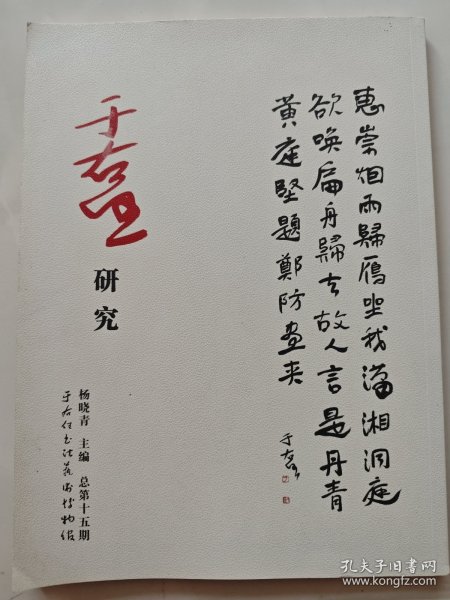 惠崇烟雨歸鴈坐我瀟湘洞庭
欲喚扁舟歸去故人言是丹青
黄庭堅題鄭防畫夹
于右任
于右任
研究
杨晓青 主编 总第十五期
于右任书法艺术博物馆
孔夫子旧书网
www.kongfz.com